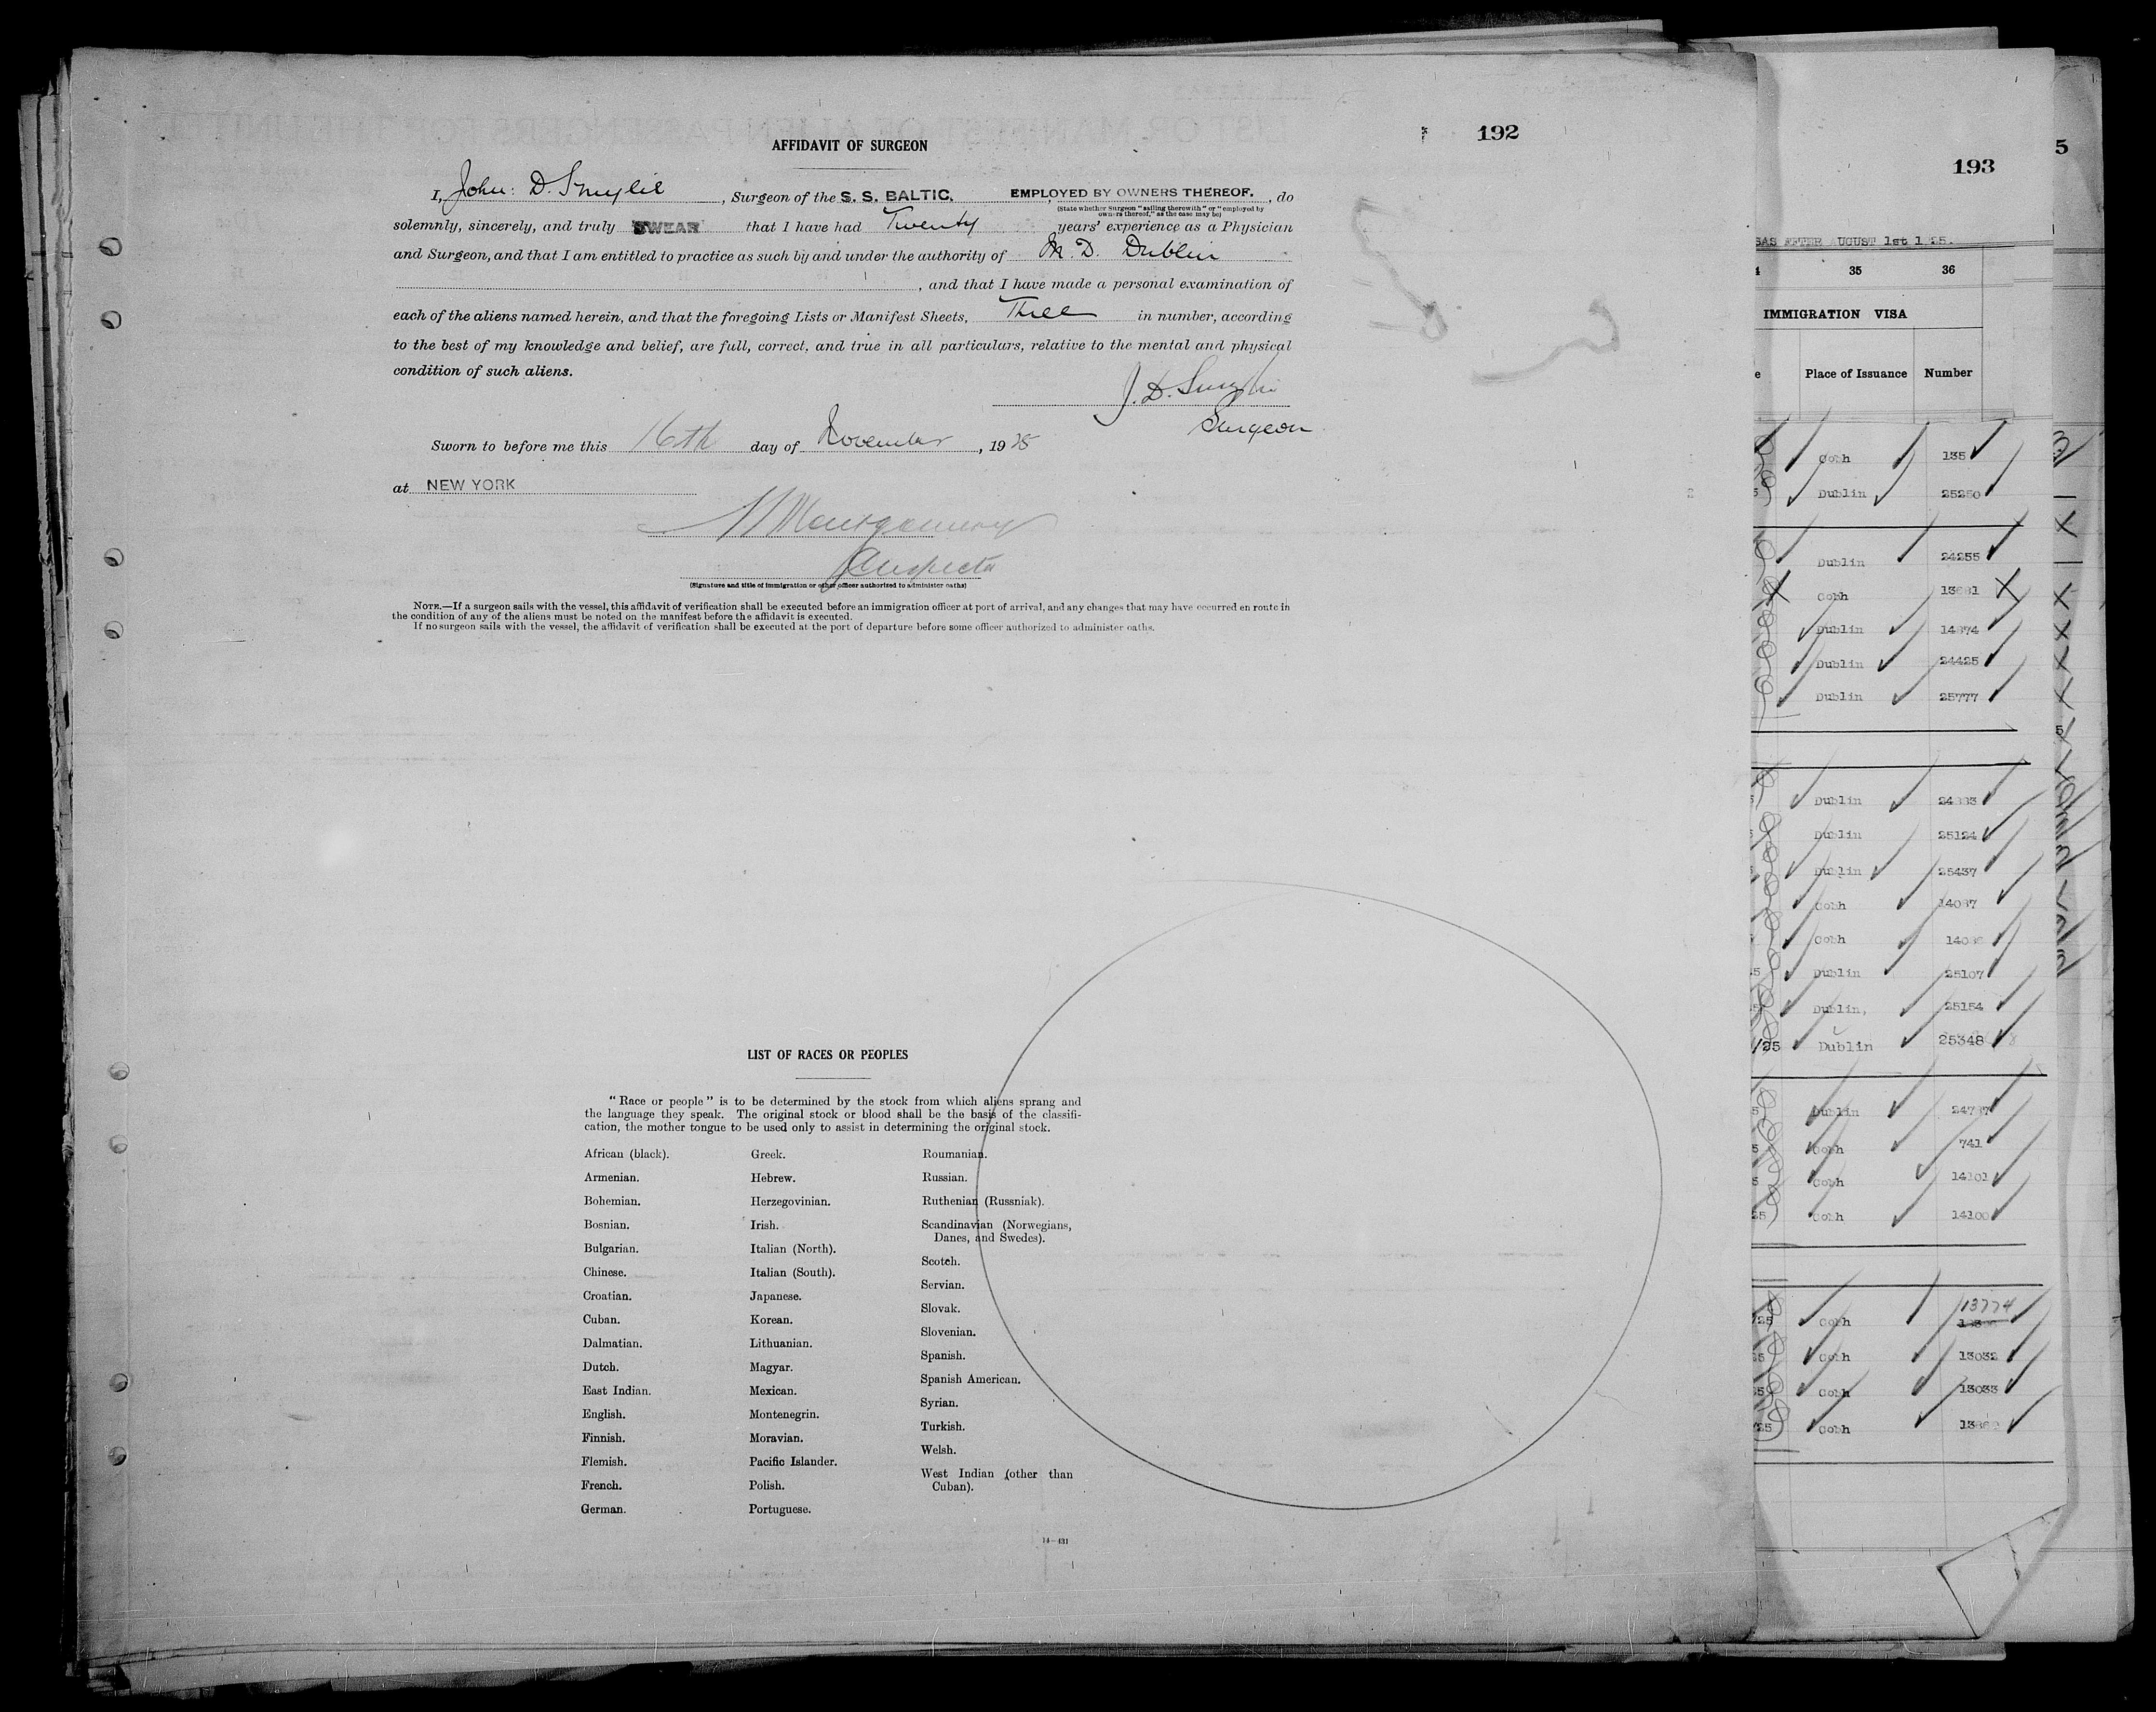 192
AFFIDAVIT OF SURGEON
I, John: D. Smylie, Surgeon of the S. S. BALTIC, EMPLOYED BY OWNERS THEREOF., do
(State whether Surgeon "sailing therewith" or "employed by
owners thereof," as the case may be)
solemnly, sincerely, and truly SWEAR that I have had Twenty years' experience as a Physician
and Surgeon, and that I am entitled to practice as such by and under the authority of M. D. Dublin
, and that I have made a personal examination of
each of the aliens named herein, and that the foregoing Lists or Manifest Sheets, Three in number, according
to the best of my knowledge and belief, are full, correct, and true in all particulars, relative to the mental and physical
condition of such aliens.
J. D. Smylie
Surgeon
Sworn to before me this 16th day of November, 1925
at NEW YORK
Montgomery
Inspector
(Signature and title of immigration or other officer authorized to administer oaths)
NOTE.—If a surgeon sails with the vessel, this affidavit of verification shall be executed before an immigration officer at port of arrival, and any changes that may have occurred en route in
the condition of any of the aliens must be noted on the manifest before the affidavit is executed.
If no surgeon sails with the vessel, the affidavit of verification shall be executed at the port of departure before some officer authorized to administer oaths.
LIST OF RACES OR PEOPLES
"Race or people" is to be determined by the stock from which aliens sprang and
the language they speak. The original stock or blood shall be the basis of the classifi-
cation, the mother tongue to be used only to assist in determining the original stock.
African (black).
Armenian.
Bohemian.
Bosnian.
Bulgarian.
Chinese.
Croatian.
Cuban.
Dalmatian.
Dutch.
East Indian.
English.
Finnish.
Flemish.
French.
German.
Greek.
Hebrew.
Herzegovinian.
Irish.
Italian (North).
Italian (South).
Japanese.
Korean.
Lithuanian.
Magyar.
Mexican.
Montenegrin.
Moravian.
Pacific Islander.
Polish.
Portuguese.
Roumanian.
Russian.
Ruthenian (Russniak).
Scandinavian (Norwegians,
Danes, and Swedes).
Scotch.
Servian.
Slovak.
Slovenian.
Spanish.
Spanish American.
Syrian.
Turkish.
Welsh.
West Indian (other than
Cuban).
14—431
193
5
AFTER AUGUST 1st
35 36
IMMIGRATION VISA
Place of Issuance Number
Cobh 135
Dublin 25250
Dublin 24255
Cobh
Dublin 14874
Dublin 24425
Dublin 25777
Dublin
Dublin 25124
Dublin 25437
Cobh 14087
Cobh
Dublin 25107
Dublin, 25154
/25 Dublin 25348
Dublin
Cobh 741
Cobh 14101
Cobh 14100
13774
Cobh
Cobh 13032
Cobh 13033
Cobh